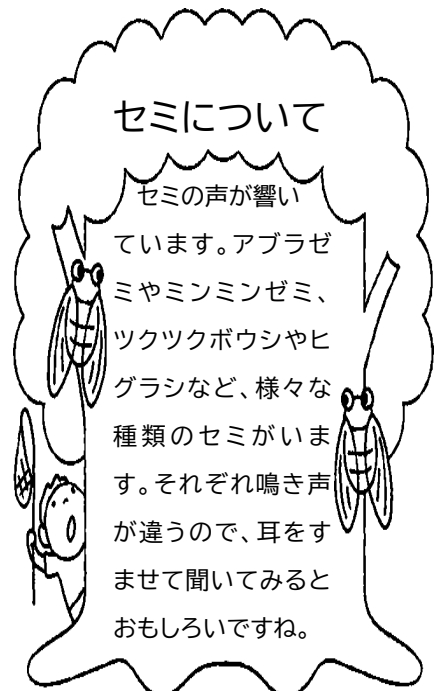 セミについて
セミの声が響い
ています。アブラゼ
ミやミンミンゼミ、
ツクツクボウシやヒ
グラシなど、様々な
種類のセミがいま
す。それぞれ鳴き声
が違うので、耳をす
ませて聞いてみると
おもしろいですね。